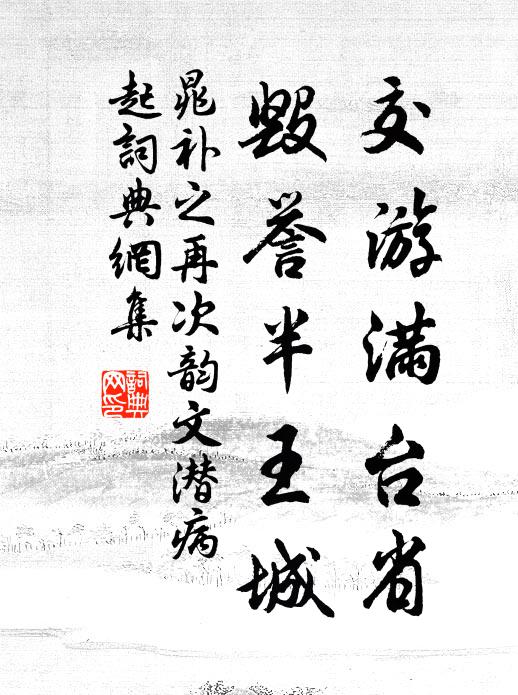 交游满台省
毁誉半王城
晁补之再次韵文潜病
起词典網集
詞典网印